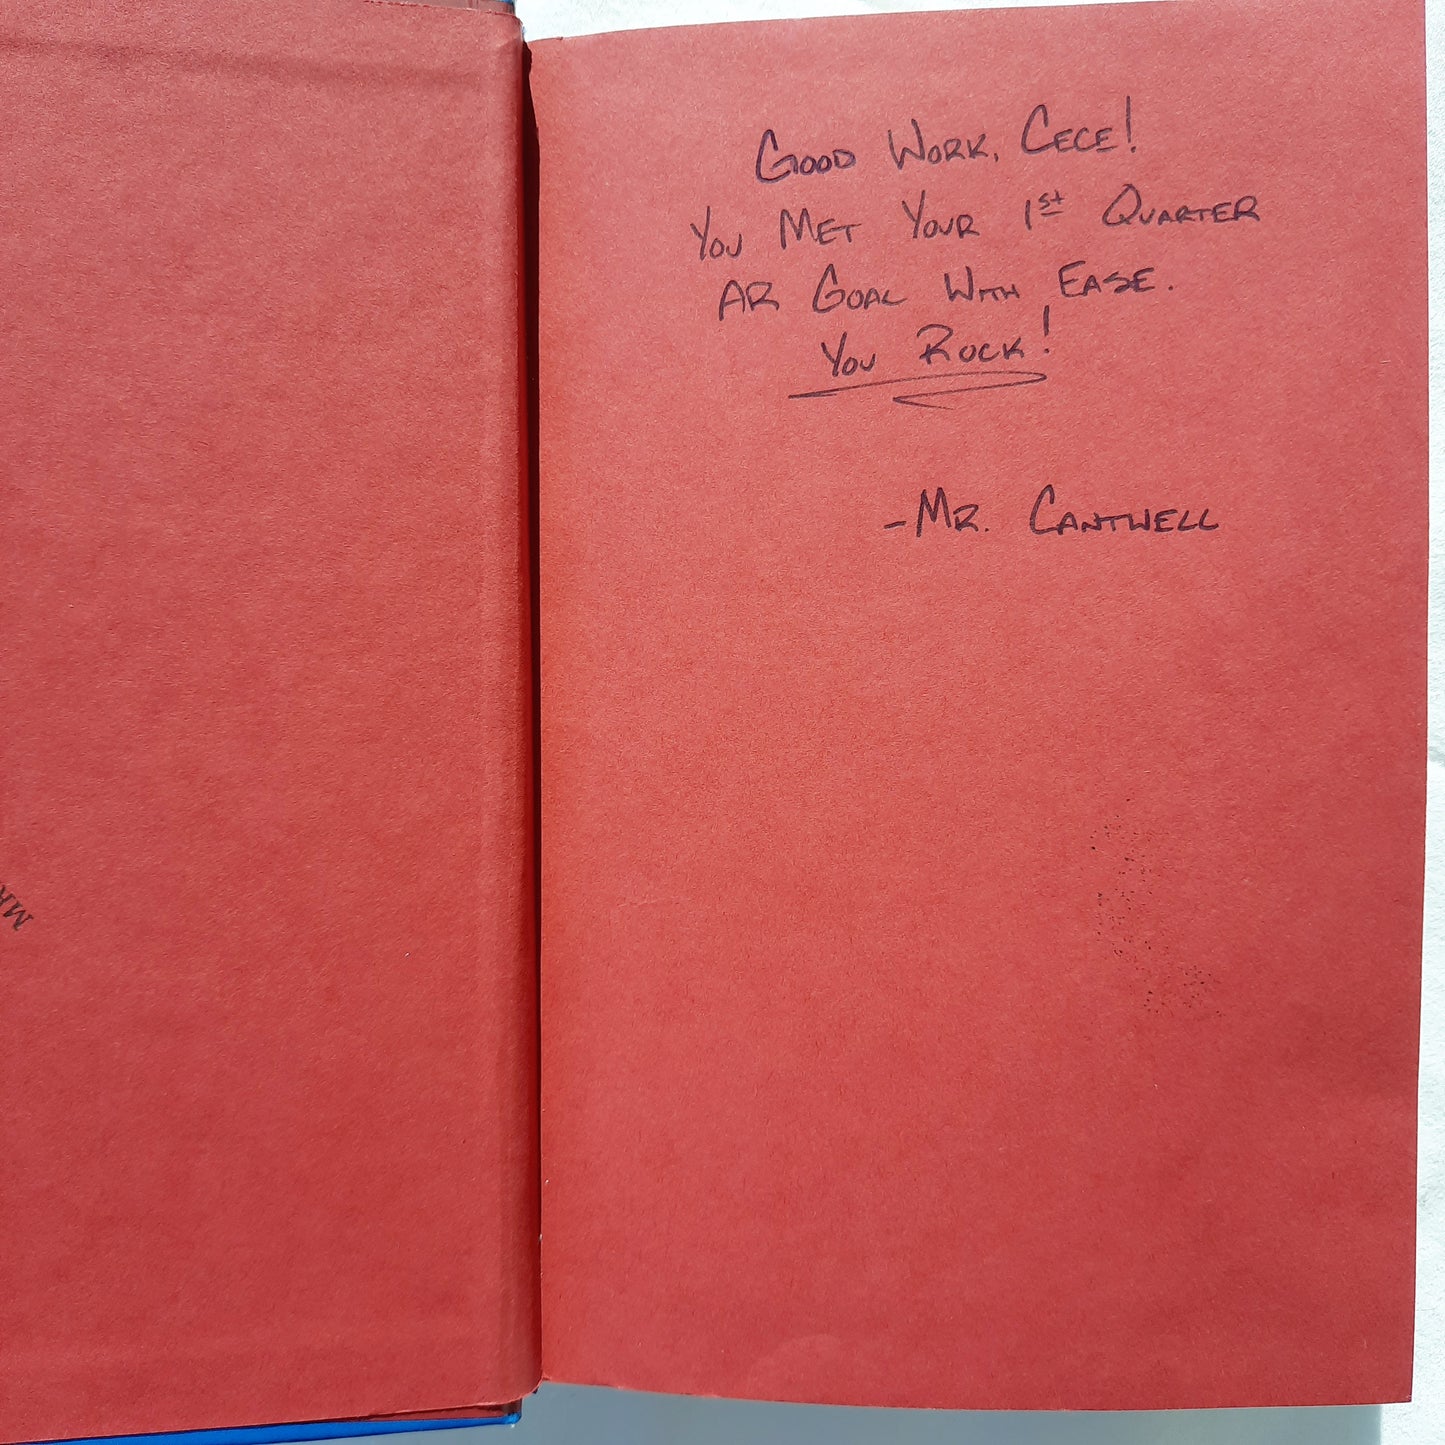 Good Work, Cece!
You Met Your 1st Quarter
AR Goal With Ease.
You Rock!
-Mr. Cantwell